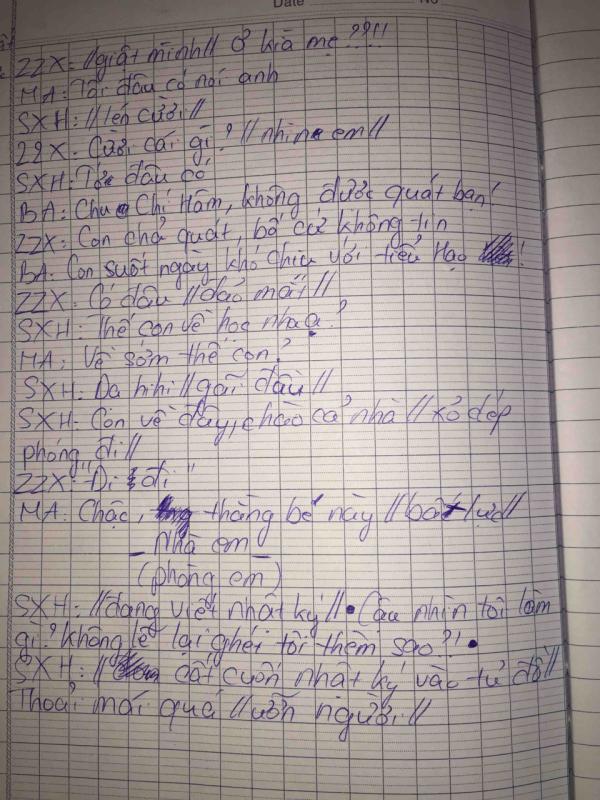 Date No
ZZX: //giật mình// Ơ kìa mẹ??!!
MA: Tôi đâu có nói anh
SXH: //lén cười//
ZZX: Cười cái gì? //nhìn em//
SXH: Tớ đâu có
BA: Chu Chí Hâm, không được quát bạn!
ZZX: Con chả quát, bố cứ không tin
BA: Con suốt ngày khó chịu với tiểu Hạo!
ZZX: Có đâu //đảo mắt//
SXH: Thế con về học nha ạ?
MA: Về sớm thế con?
SXH: Dạ hihi //gãi đầu//
SXH: Con về đây, chào cả nhà //xỏ dép
phóng đi//
ZZX: "Đi đi"
MA: Chậc, thằng bé này //bất lực//
_ Nhà em _
(phòng em)
SXH: //đang viết nhật ký// • Cậu nhìn tôi làm
gì? không lẽ lại ghét tôi thêm sao?! •
SXH: // cất cuốn nhật ký vào tủ đồ//
Thoải mái quá //ưỡn người//